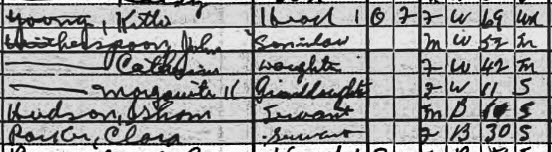 Young, Kitte Head 1 O 7 F W 69 Wd
Witherspoon, John Soninlaw M W 52 M
—— Cathrine Daughter F W 42 M
—— Marguerite K Grandaughter F W 11 S
Hudson, Isham Servant M B S
Parker, Clara Servant F B 30 S